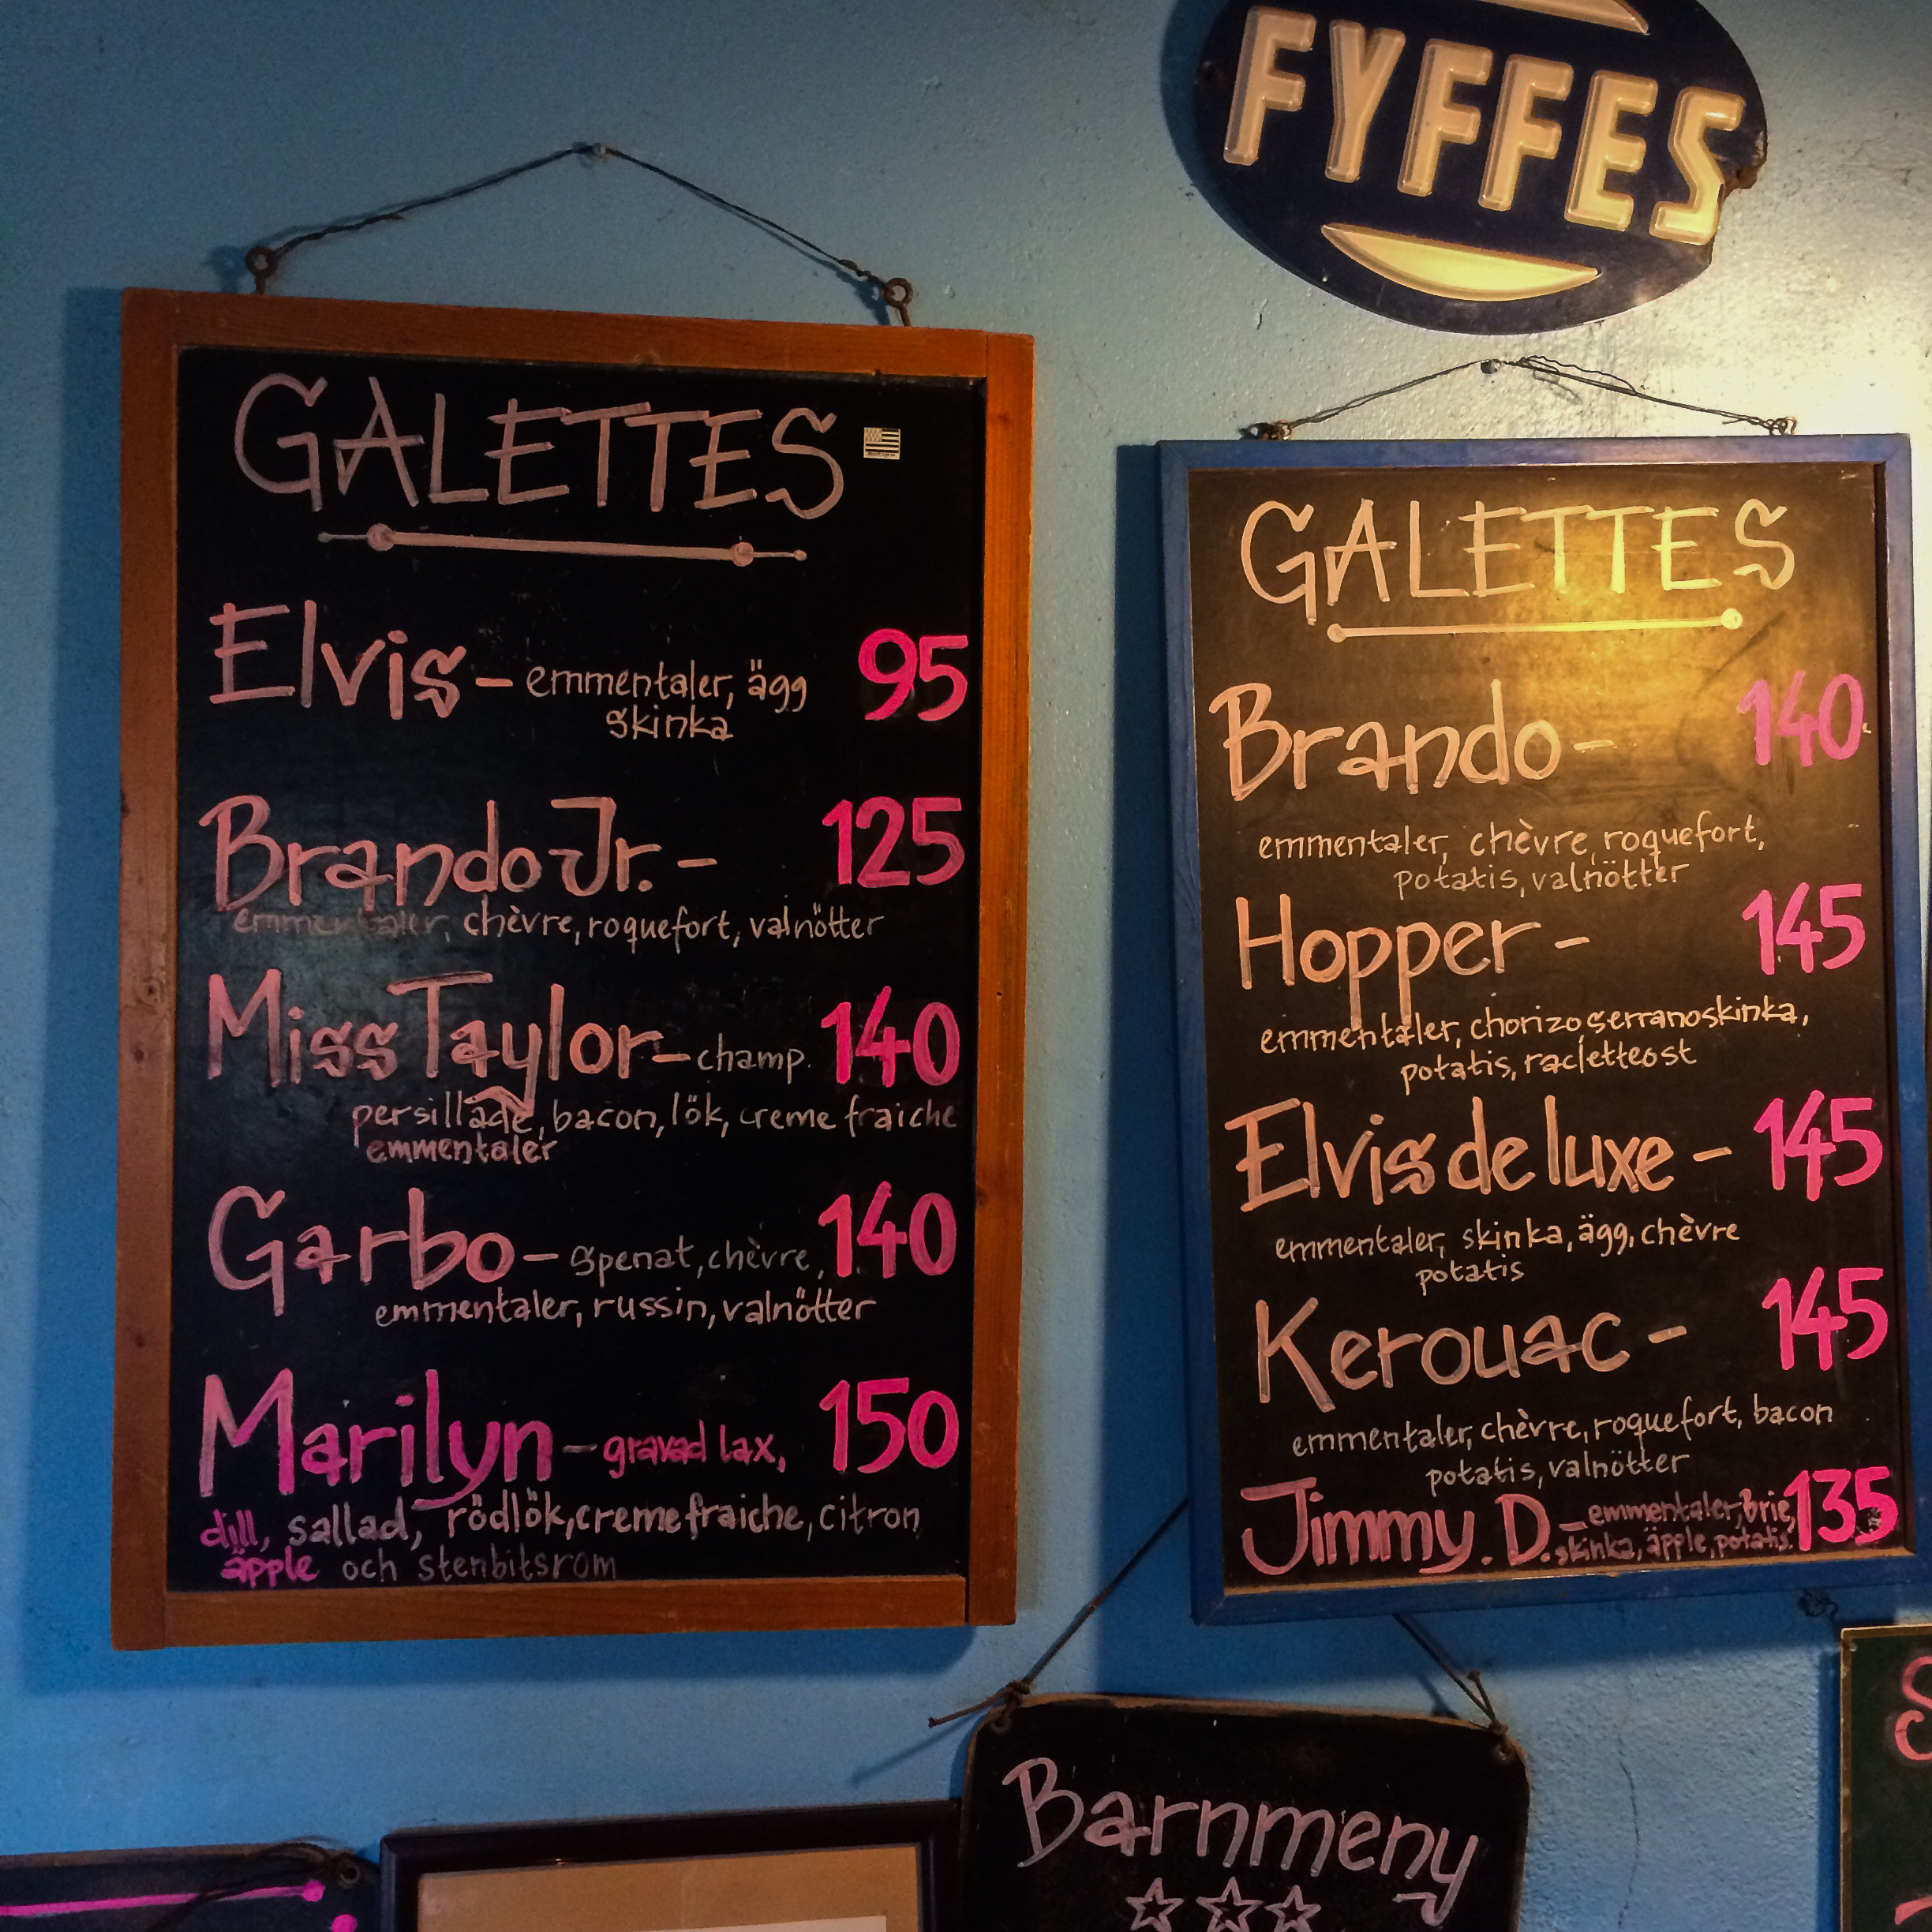 FYFFES
GALETTES
Elvis – emmentaler, ägg 95
skinka
Brando Jr. – 125
emmentaler, chèvre, roquefort, valnötter
Miss Taylor – champ. 140
persillade, bacon, lök, creme fraiche
emmentaler
Garbo – spenat, chèvre, 140
emmentaler, russin, valnötter
Marilyn – gravad lax, 150
dill, sallad, rödlök, creme fraiche, citron
äpple och stenbitsrom
GALETTES
Brando – 140
emmentaler, chèvre, roquefort,
potatis, valnötter
Hopper – 145
emmentaler, chorizo, serranoskinka,
potatis, racletteost
Elvis de luxe – 145
emmentaler, skinka, ägg, chèvre
potatis
Kerouac – 145
emmentaler, chèvre, roquefort, bacon
potatis, valnötter
Jimmy. D. – emmentaler, brie, 135
skinka, äpple, potatis.
Barnmeny